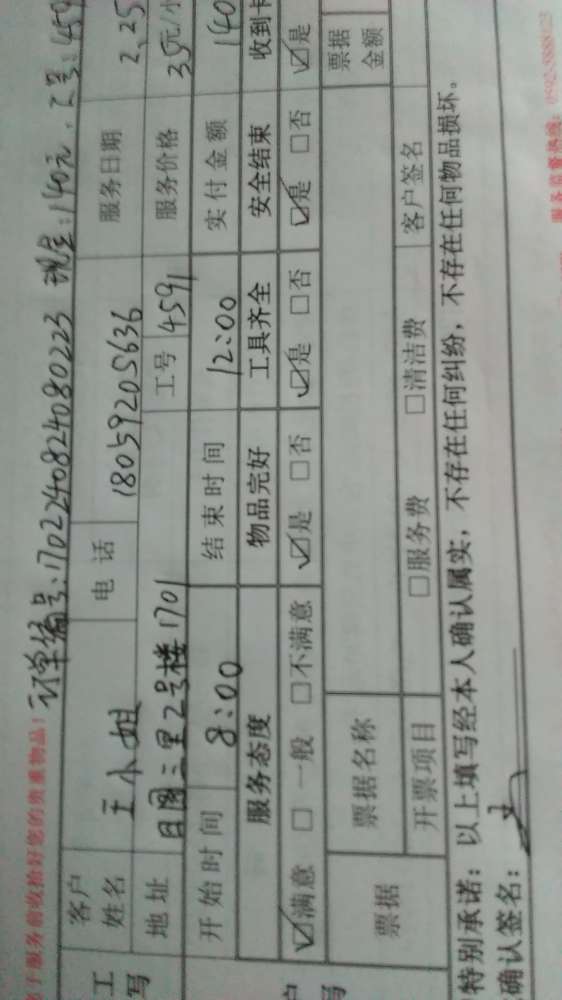 于服务前收拾好您的贵重物品!
订单编号:1702240824080223 现金:140元. 工号:459
客户姓名 王小姐 电话 18059205636 服务日期 2.25
地址 三里2号楼1701 工号 4591 服务价格 35元/小
开始时间 8:00 结束时间 12:00 实付金额 140
服务态度 物品完好 工具齐全 安全结束 收到卡
☑满意 □一般 □不满意 ☑是 □否 ☑是 □否 ☑是 □否 ☑是
票据 票据名称 票据金额
开票项目 □服务费 □清洁费 客户签名
特别承诺:以上填写经本人确认属实,不存在任何纠纷,不存在任何物品损坏。
确认签名:
服务监督热线:0592-5888123
工
写
户
写